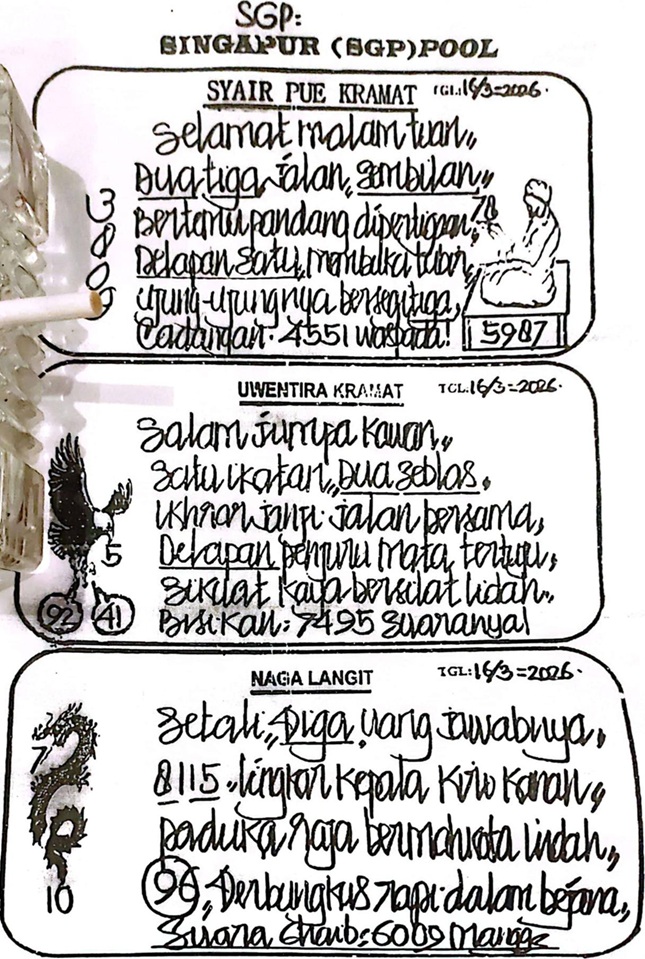 SGP:
SINGAPUR (SGP) POOL
SYAIR PUE KRAMAT TGL:16/3=2026.
Selamat malam tuan,,
Dua tiga jalan, Sembilan,,
Bertemu pandang dipertigaan,
78
Delapan satu, membuka tubir,
ujung-ujungnya bersegitiga,
Cadangan: 4551 waspada!
5987
UWENTIRA KRAMAT TGL:16/3=2026.
Salam jumpa kawan,,
Satu ikatan,, Dua Seblas,
Ikhrar janji jalan bersama,
5
Delapan penjuru mata tertuju,
Sikuat kaya bersilat lidah,,
92 41
Bisikan: 7495 Suaranya!
NAGA LANGIT TGL:16/3=2026.
Setali,, Diga, uang jawabnya,
7
8115 lingkar kepala kiri kanan,,
paduka raja bermahkota indah,,
96,, Derbungkus rapi dalam bejana,,
10
Suara Ghaib: 6009